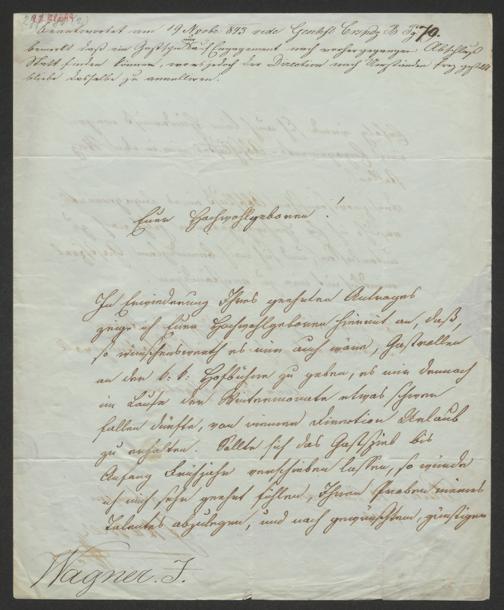 Beantwortet am 19 Novbr 843 vide Geschft Expdg B Fg 70.
bemerkt daß ein Gastspiel auf Engagement nach vorhergegangenen Abschluß
Statt finden können, wovon jedoch der Direction nach Umständen frey gestellt
bliebe dasselbe zu annulliren.
Euer Hochwohlgeboren!
In Erwiederung Ihres geehrten Antrages
zeige ich Euer Hochwohlgeboren hiermit an, daß,
so wünschenswerth es mir auch wäre, Gastrollen
an der k: k: Hofbühne zu geben, es mir dennoch
im Laufe der Wintermonate etwas schwer
fallen dürfte, von meiner Direction Urlaub
zu erhalten. Sollte sich das Gastspiel bis
Anfang Frühjahr verschieben lassen, so würde
ich mich sehr geehrt fühlen, Ihnen Proben meines
Talentes abzulegen, und nach gewünschtem, günstigen
Wagner. J.